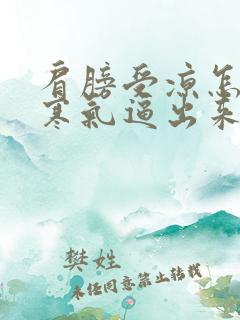 肩膀受凉怎
寒氣逼出来
樊姓
未经同意禁止转载